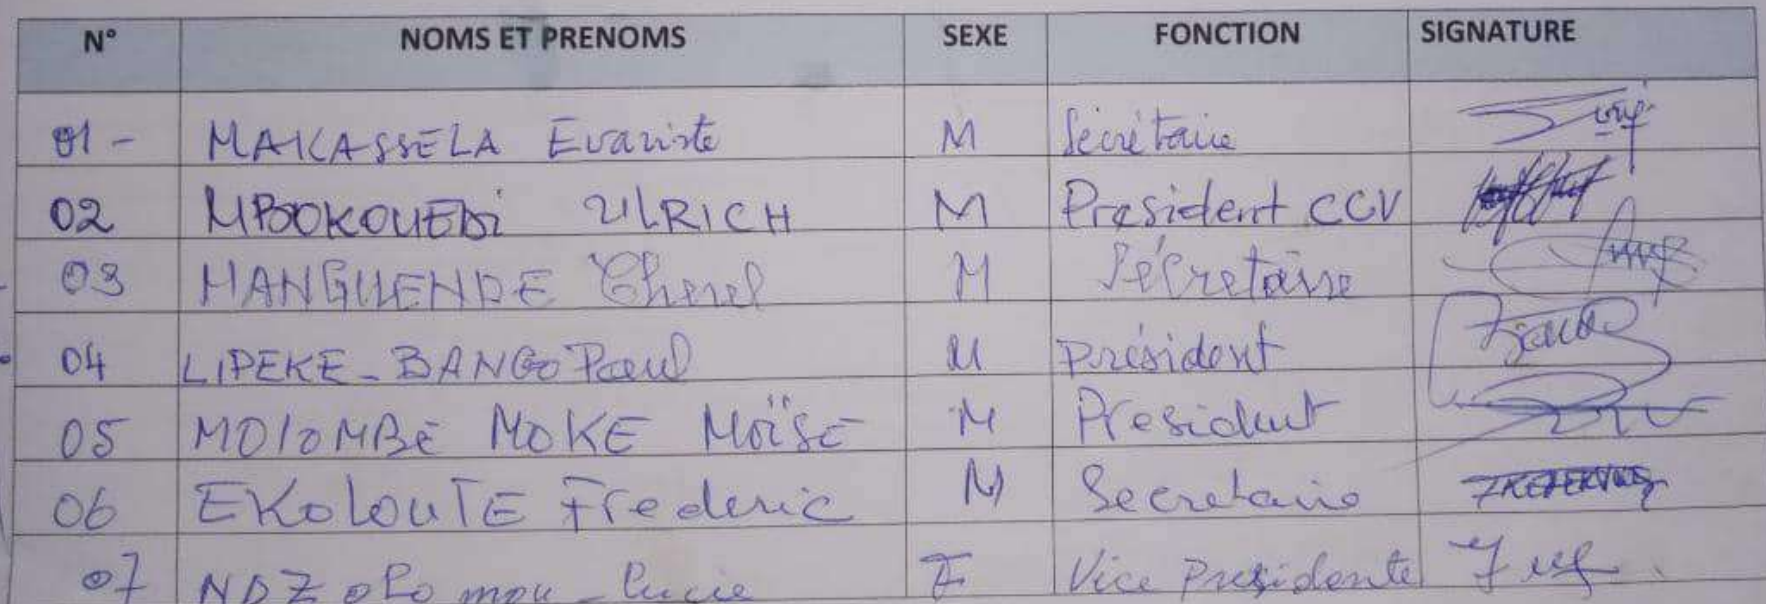 N° NOMS ET PRENOMS SEXE FONCTION SIGNATURE
01 - MAKASSELA Evariste M Sécrétaire
02 MBOKOUEBi ULRICH M Président CCV
03 MANGUENDE Cherel M Sécretaire
04 LIPEKE - BANGO Paul M président
05 MOloMBé MOKE Moïse M President
06 EKolouTE Frederic M Secretaire
07 NDZoLo mou - Lucie F Vice Présidente